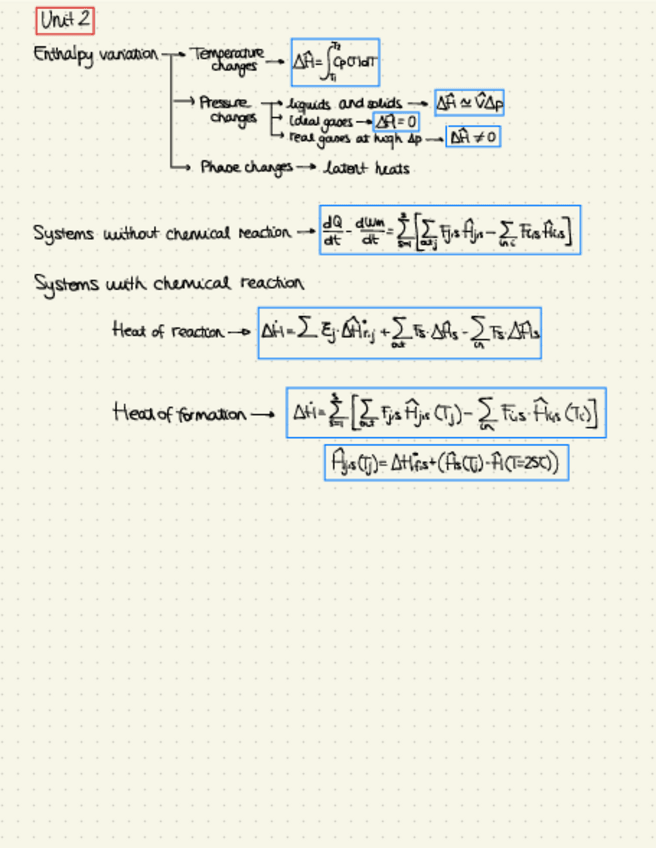 Unit 2
Enthalpy variation → Temperature changes → ΔĤ = ∫_{T1}^{T2} Cp(T)dT
→ Pressure changes → liquids and solids → ΔĤ ≃ V̂Δp
→ Ideal gases → ΔĤ = 0
→ real gases at high Δp → ΔĤ ≠ 0
→ Phase changes → latent heats
Systems without chemical reaction → dQ/dt - dWm/dt = Σ_{s=1}^{s} [Σ_{out j} Fj,s Ĥj,s - Σ_{in i} Fi,s Ĥi,s]
Systems with chemical reaction
Heat of reaction → ΔḢ = Σ ξj · ΔĤ°r,j + Σ_{out} Fs · ΔĤs - Σ_{in} Fs · ΔĤs
Heat of formation → ΔḢ = Σ_{s=1}^{s} [Σ_{out} Fj,s Ĥj,s (Tj) - Σ_{in} Fi,s · Ĥi,s (Ti)]
Ĥj,s(Tj) = ΔH°f,s + (Ĥs(Tj) - Ĥ(T=25C))